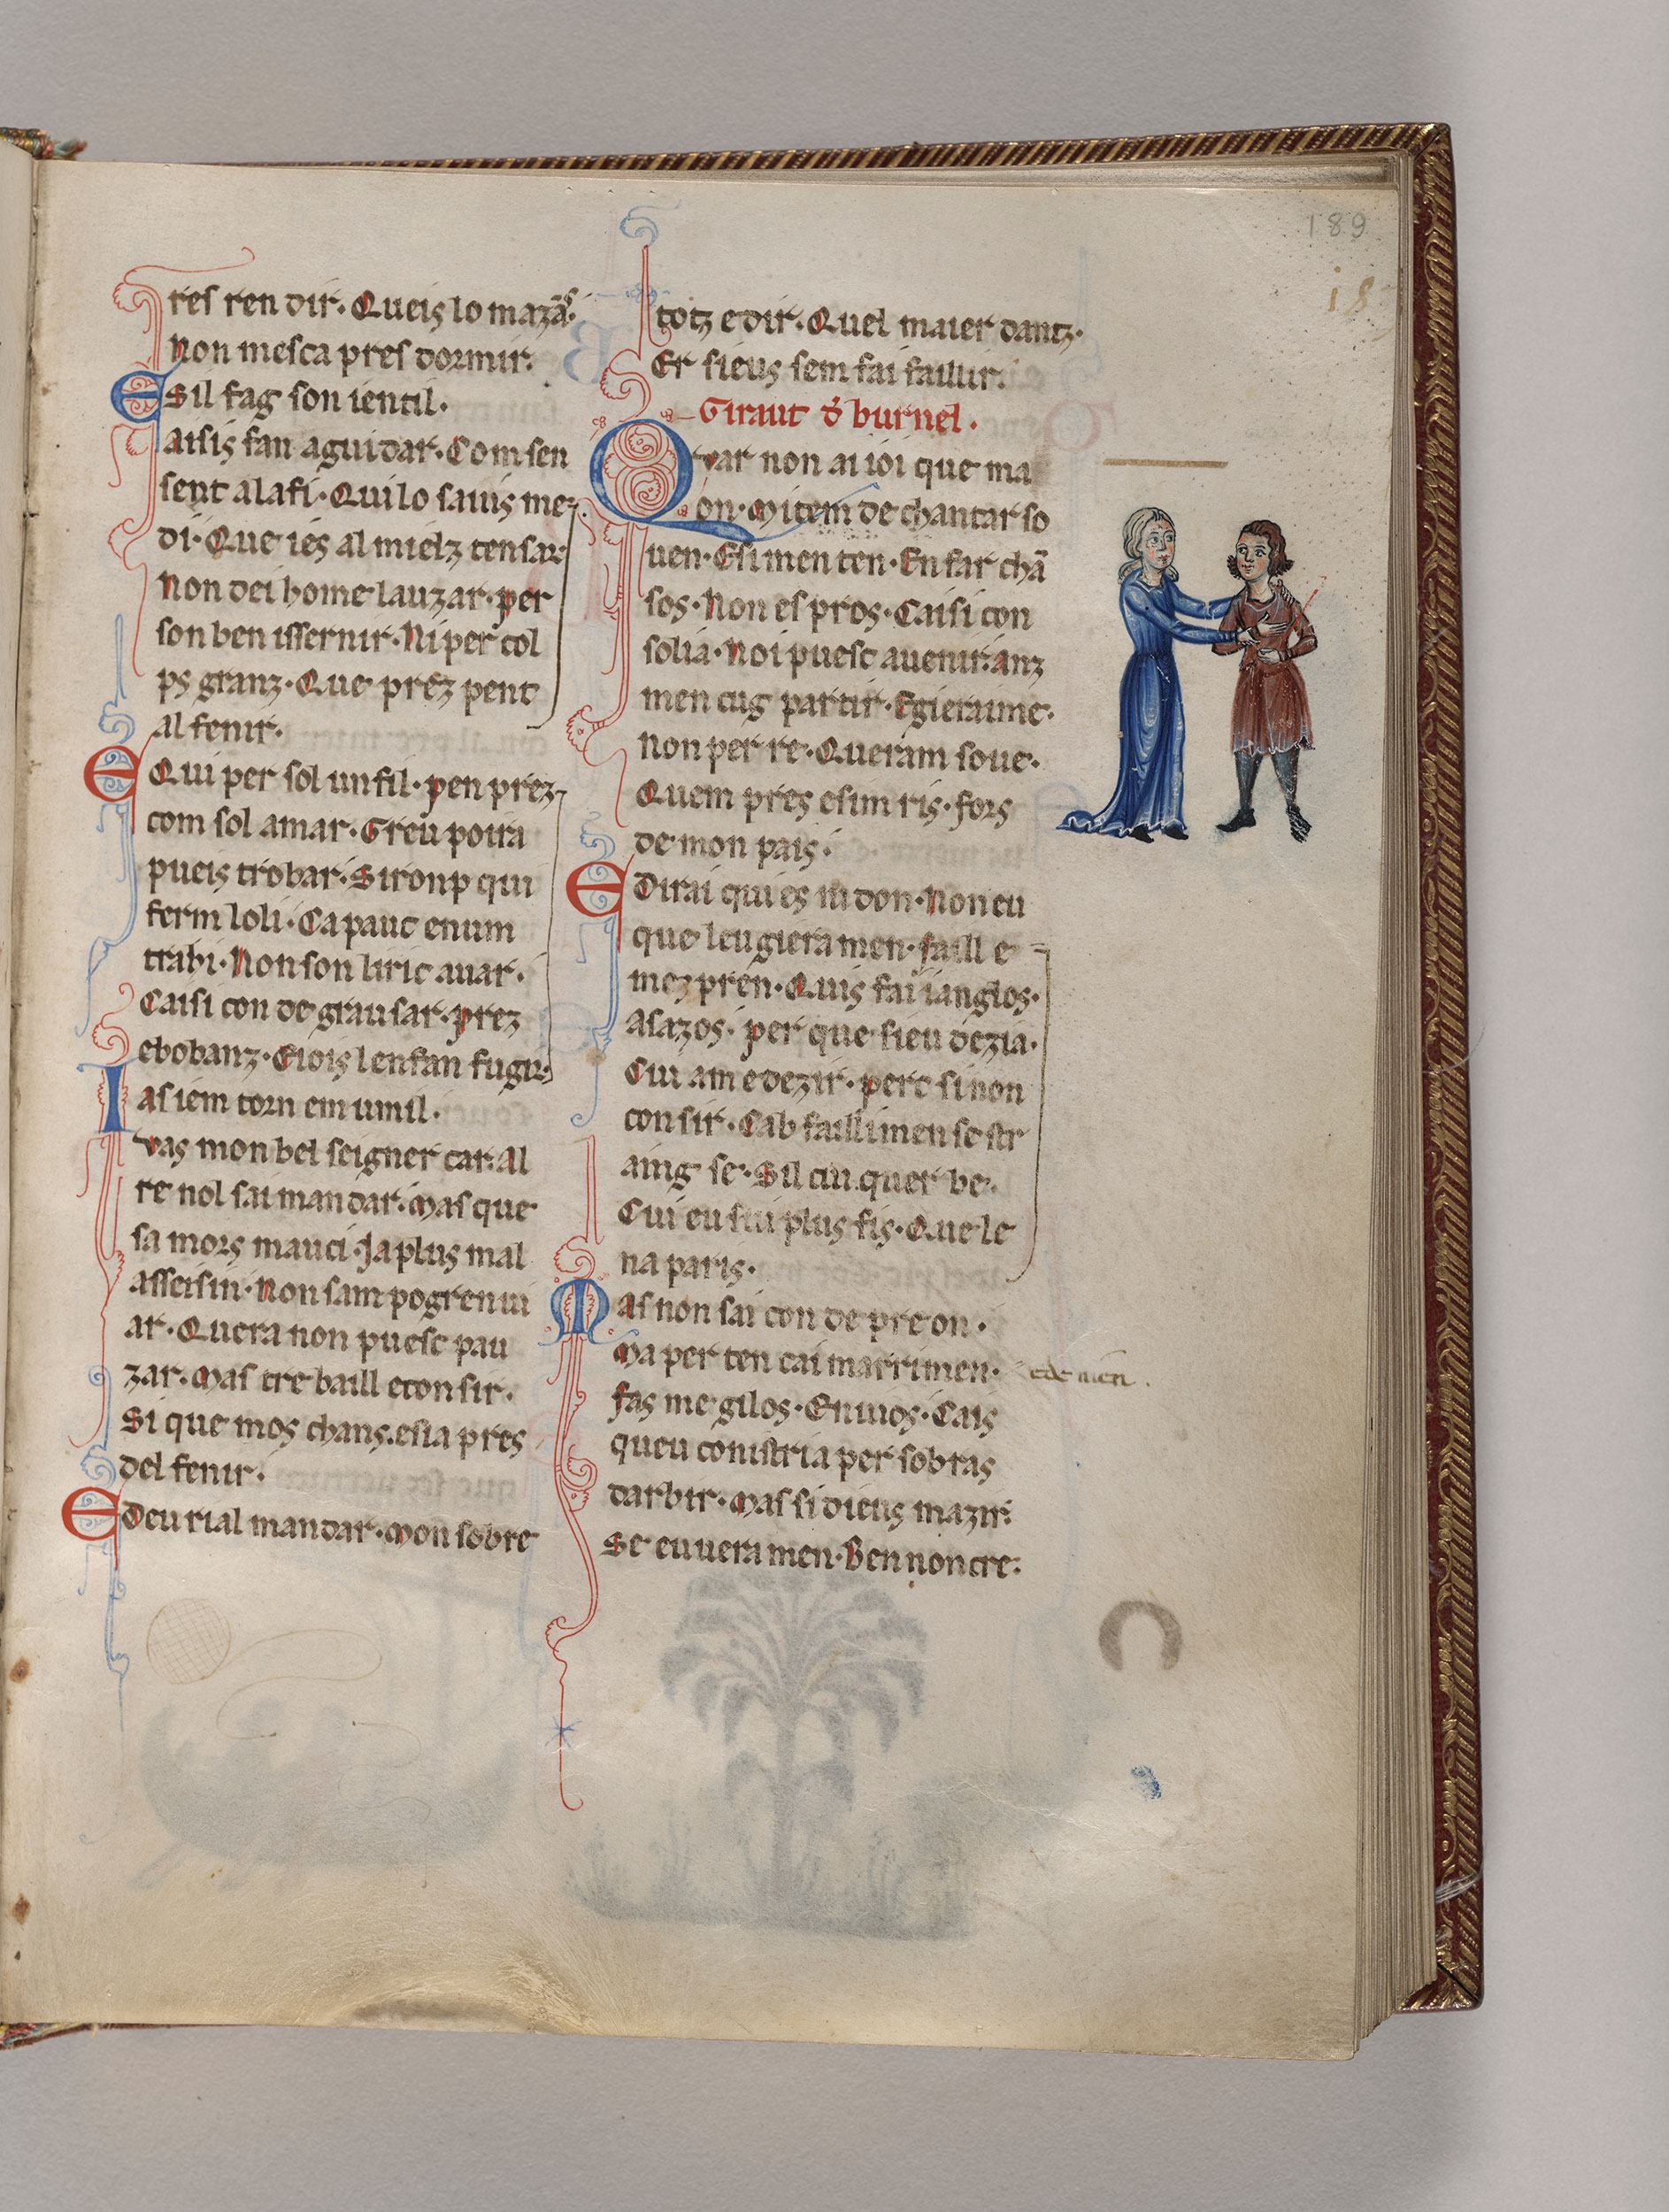 189
res ren dir. Queis lo mazās.
non mesca pres dormir.
Esil fag son ientil.
aisis fan aguidar. Com sen
sent alafi. Qui lo sauis me
di. Que ies al mielz tensar.
Non dei home lauzar. per
son ben issernir. Ni per col
ps granz. Que prez pent
al fenir.
E Qui per sol un fil. pen prez
com sol amar. Greu poira
pueis trobar. Si ronp qui
ferm loli. Ca pauc enum
trabi. Non son liric auar.
Caisi con de grausar. prez
ebobanz. Eiois lenfan fugir.
Iasiem torn em umil.
vas mon bel seigner car. Al
re nol sai mandar. Mas que
sa mors mauci. Ja plus mal
asseisin. Non sam pogren ui
ar. Quera non puesc pau
zar. Mas tre baill econsir.
Si que mos chans. esia pres
del fenir.
E Deu rial mandar. Mon sobre
totz e dir. Quel maier dantz.
Er sieus sem fai faillir.
Giraut đ burnel.
Qvar non ai ioi que ma
on. Mitem de chantar so
uen. Esi men ten. En far chā
sos. Non es pros. Caisi con
solia. Noi puesc auenir. anz
men cug partir. Egieraime.
Non per re. Queram soue.
Quem pres esim ris. fors
de mon pais.
E Dirai qui es mdon. Non eu
que leugiera men. faill e
mezpren. Quis fai ianglos.
asazos. per que sieu dezia.
Cui am edezir. perc si non
consir. Cab faillimen se str
aing se. Sil cui quer be.
Cui eu sui plus fis. Que le
na paris.
Mas non sai con de pre on.
Ma per ten cai marrimen.
fas me gilos. Enuios. Cais
queu conistria per sobras
darbir. Mas si dieus mazir.
Se euueramen. Ben non cre.